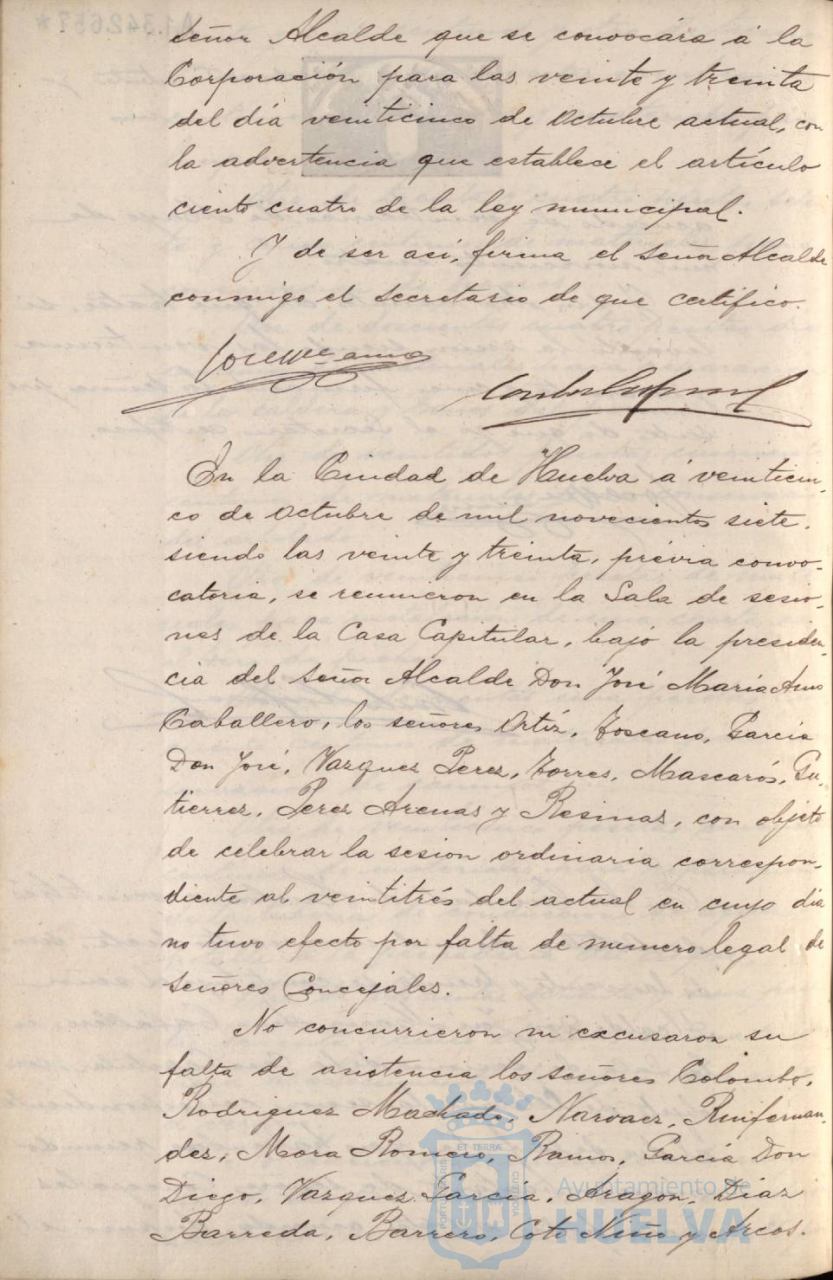 Señor Alcalde que se convocára á la
Corporación para las veinte y treinta
del día veinticinco de Octubre actual, con
la advertencia que establece el artículo
ciento cuatro de la ley municipal.
Y de ser así, firma el Señor Alcalde
conmigo el Secretario de que certifico.
En la Ciudad de Huelva á veinticin-
co de Octubre de mil novecientos siete,
siendo las veinte y treinta, prévia convo-
catoria, se reunieron en la Sala de sesio-
nes de la Casa Capitular, bajo la presiden-
cia del Señor Alcalde Don José María Amo
Caballero, los señores Ortíz, Toscano, García
Don José, Vazquez Perez, Torres, Mascarós, Gu-
tierrez, Perez Arenas y Resinas, con objeto
de celebrar la sesion ordinaria correspon-
diente al veintitrés del actual en cuyo dia
no tuvo efecto por falta de numero legal de
Señores Concejales.
No concurrieron ni excusaron su
falta de asistencia los señores Colombo,
Rodriguez Machado, Narvaez, Ruifernan-
dez, Mora Romero, Ramos, García Don
Diego, Vazquez García, Aragon, Diaz
Barreda, Barrero, Coto Niño y Arcos.
A1.342.657*
ET TERRA
Ayuntamiento De
HUELVA